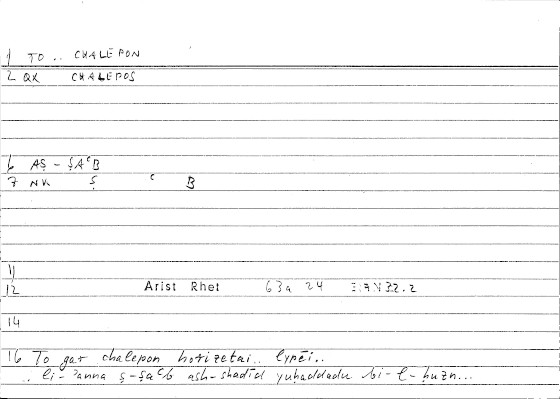 1 TO .. CHALEPON
2 QK CHALEPOS
6 AṢ - ṢAʿB
7 NK Ṣ ʿ B
11
12 Arist Rhet 63a 24
14
16 To gar chalepon horizetai.. lypēi..
.. li-ʾanna ṣ-ṣaʿb ash-shadīd yuḥaddadu bi-l-ḥuzn...